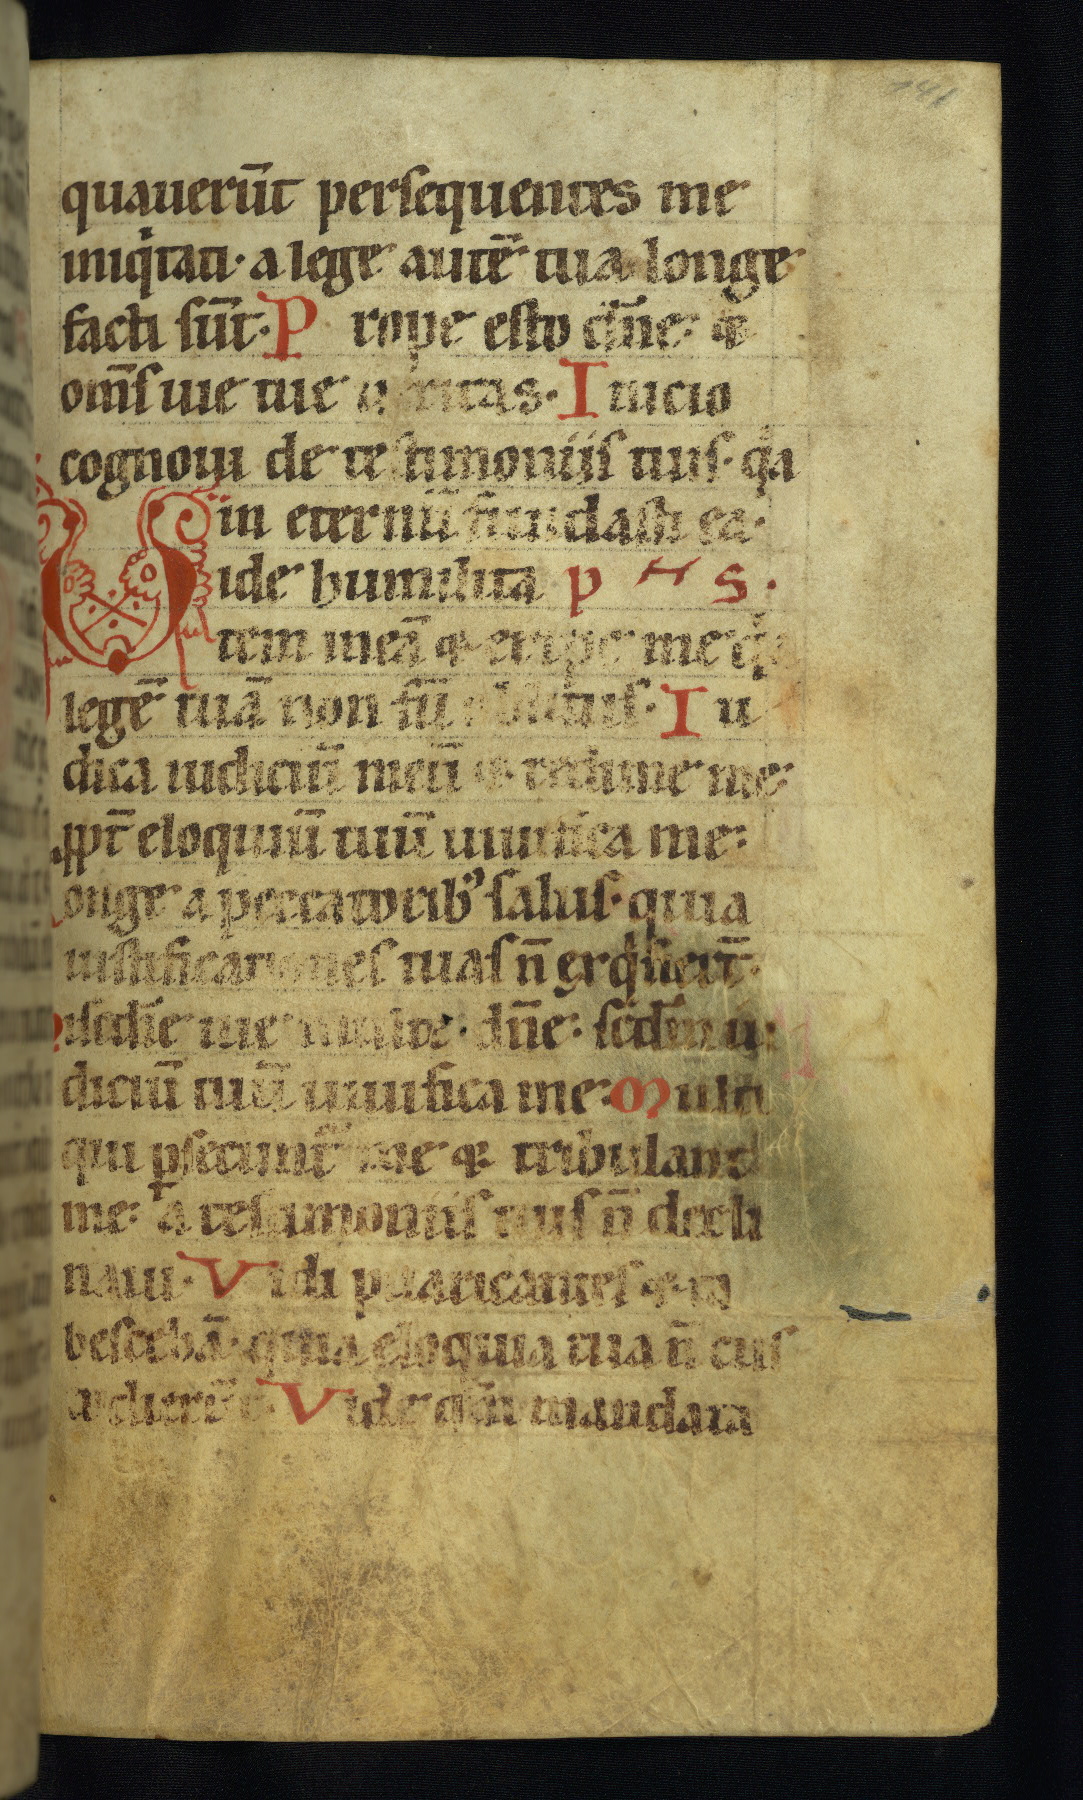 quauerūt persequentes me
iniqͥtati· a lege autē tua longe
facti sūt· P rope esto dn̄e· ⁊
om̄s uie tue ueritas· I nicio
cognoui de testimoniis tuis· qͣa
in eternū fundasti ea·
V ide humilita p s·
tem meā ⁊ eripe me qͣa
legē tuā non sū oblitus· I u
dica iudiciū meū ⁊ redime me·
ꝓpt̄ eloquiū tuū uiuifica me·
Longe a peccatoribꝰ salus· quia
iustificationes tuas n̄ exqͥsierūt·
Miscd̄ie tue multe· dn̄e· scd̄m iu
diciū tuū uiuifica me· Multi
qui ꝑsecunt̄ me ⁊ tribulant
me· a testimoniis tuis n̄ decli
naui· V idi p̄uaricantes ⁊ ta
bescebā· quia eloquia tua n̄ cus
todierūt· V ide qm̄ mandata